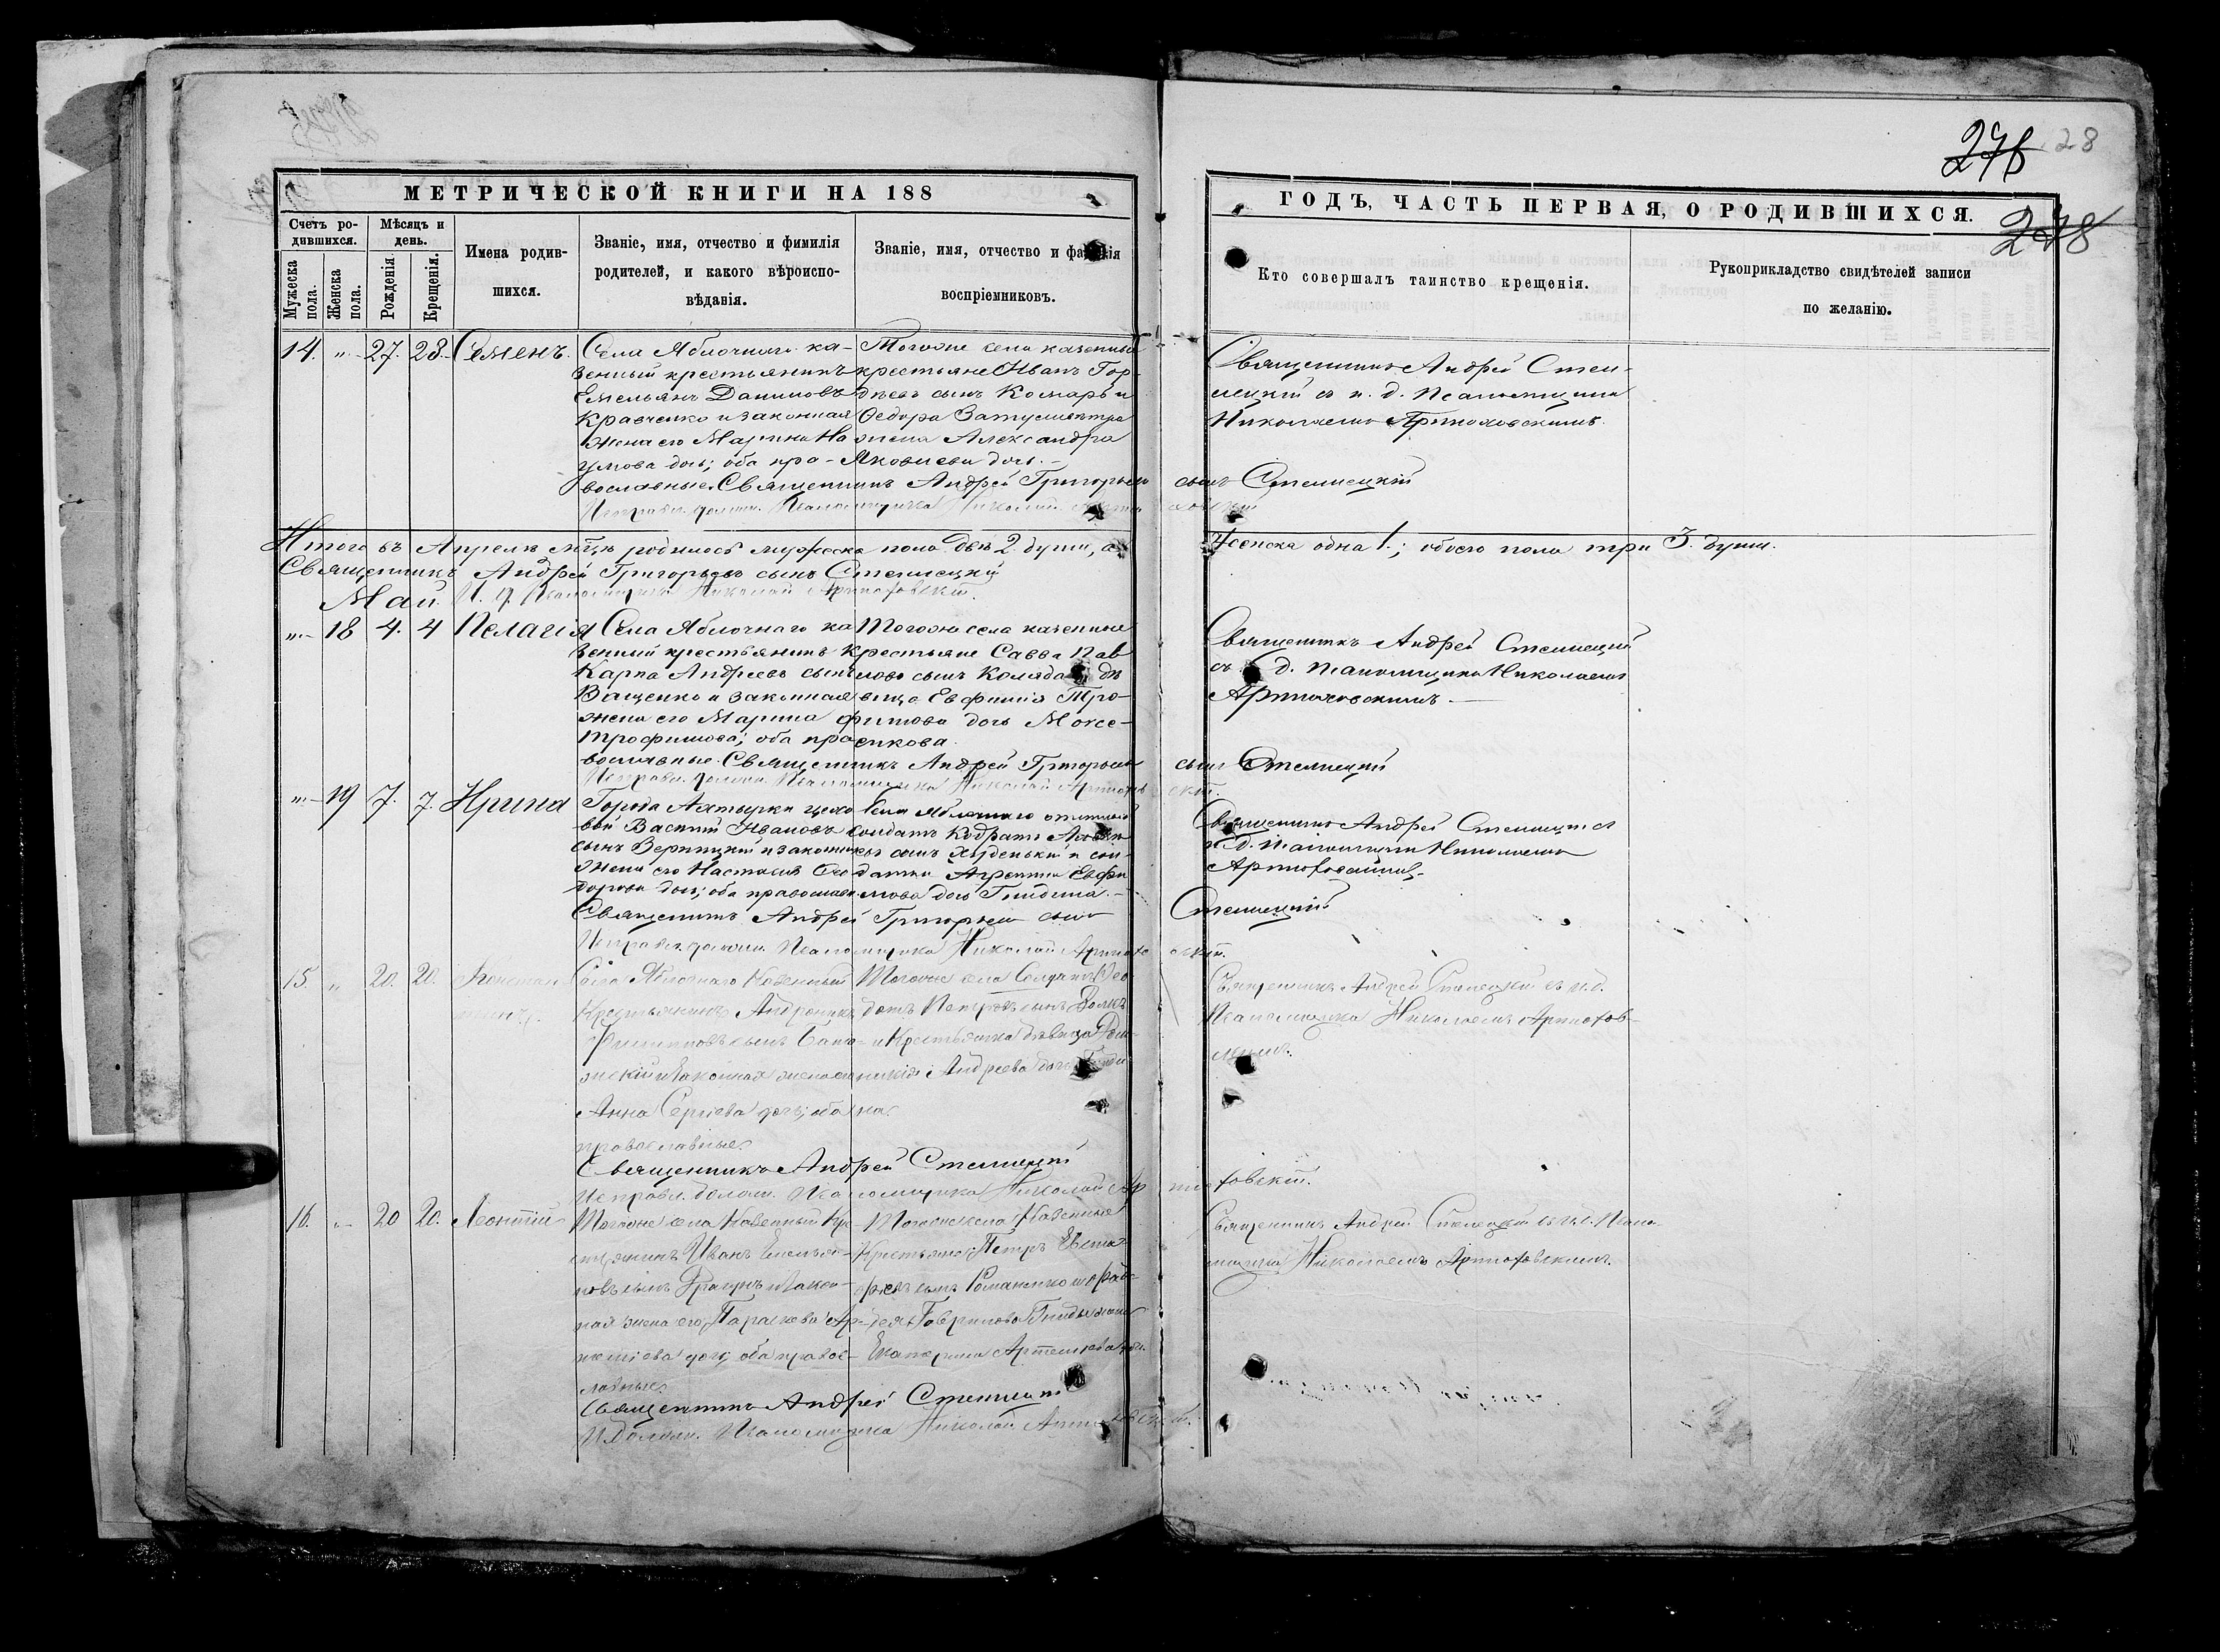 276 28
МЕТРИЧЕСКОЙ КНИГИ НА 188
ГОДЪ, ЧАСТЬ ПЕРВАЯ, О РОДИВШИХСЯ.
278
Счетъ ро-
дившихся.
Мужеска
пола.
Женска
пола.
Мѣсяцъ и
день.
Рожденія.
Крещенія.
Имена родив-
шихся.
Званіе, имя, отчество и фимилія
родителей, и какого вѣроиспо-
вѣданія.
Званіе, имя, отчество и фамилія
воспріемниковъ.
Кто совершалъ таинство крещенія.
Рукоприкладство свидѣтелей записи
по желанію.
14. " 27. 28. Семенъ.
Села Яблочнаго ка-
зенный крестьянинъ
Емельянъ Даниловъ
Кравченко и законная
жена его Марина На
умова дочь; оба пра-
вославные.
Тогоже села казенные
крестьяне Иванъ Гор-
дѣевъ сынъ Комаръ и
Федора
жена Александра
Яковлева дочь.
Священникъ Андрей Стел-
лецкій съ и. д. Псаломщика
Николаемъ Артюховскимъ.
Священникъ Андрей Григорьевъ сынъ Стеллецкій
Исправл. должн. Псаломщика Николай
Итого въ Апрелѣ м-цѣ родилось мужеска пола двѣ 2 души, а
женска одна 1.; обоего пола три 3. души.
Священникъ Андрей Григорьевъ сынъ Стеллецкій
И. д. Псаломщика Николай Артюховскій.
Май.
" 18 4. 4 Пелагія
Села Яблочнаго ка
зенный крестьянинъ
Карпъ Андреевъ сынъ
Ващенко и законная
жена его Марина
Трофимова; оба пра
вославные.
Тогоже села казенные
крестьяне Савва Пав
ловъ сынъ Коляда и дѣ
вица Евфимія Тро-
фимова дочь Моисе-
енкова.
Священникъ Андрей Стеллецкій
съ д. псаломщика Николаемъ
Артюховскимъ.
Священникъ Андрей Григорьевъ сынъ Стеллецкій
Исправл. должн. Псаломщика Николай Артюховскій.
" 19 7. 7. Ирина
Города Ахтырки цехо
вой Василій Ивановъ
сынъ Верницкій и законная
жена его Настасія Фео
дорова дочь; оба православн
Села Яблочнаго
солдатъ Кодратъ
сынъ Худенькій и сол-
датка Агрепина Евфи
мова дочь
Священникъ Андрей Стеллецкій
и д. псаломщика Николаемъ
Артюховскимъ.
Священникъ Андрей Григорьевъ сынъ Стеллецкій
Исправл. должн. Псаломщика Николай Артюховскій.
15. " 20. 20. Констан-
тинъ.
Села Яблочнаго Казенный
Крестьянинъ Андроникъ
Филипповъ сынъ
и законная жена его
Анна Сергіева дочь; оба
православные.
Тогоже села Солдатъ Фео
дотъ Петровъ сынъ Волкъ
и Крестьянка дѣвица
Андреева дочь
Священникъ Андрей Стеллецкій съ и. д.
Псаломщика Николаемъ Артюхов-
скимъ.
Священникъ Андрей Стеллецкій
Исправл. должн. Псаломщика Николай Артюховскій.
16. " 20 20. Леонтій
Тогоже села Казенный Кре-
стьянинъ Иванъ Емелья-
новъ сынъ и закон-
ная жена его Параскева
дочь; оба правос-
лавные.
Тогоже села Казенные
Крестьяне: Петръ Евста-
фіевъ сынъ Романенко и
Гаврилова жена
Екатерина Артемьева дочь.
Священникъ Андрей Стеллецкій съ и. д. Псало-
мщика Николаемъ Артюховскимъ.
Священникъ Андрей Стеллецкій
И. должн. Псаломщика Николай Артюховскій.